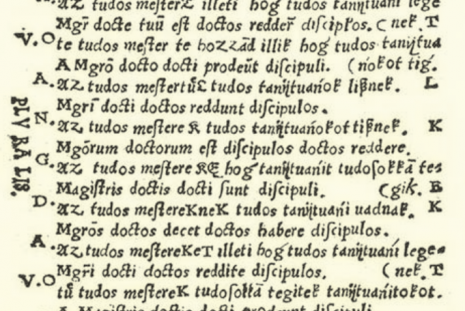 AZ tudos mesterZ illeti hog tudos tanÿtuani lege
Mgr̄ docte tuū est doctos redder̄ discip̄los. ( nek. T
V.O te tudos mester te hozzād illik hog tudos tanÿtua
A Mgrō docto docti prodeūt discipuli. ( nokot tig.
A. AZ tudos mestertűL tudos tanÿtuanok lißnek. L
Mgri docti doctos reddunt discipulos.
N. AZ tudos mestere K tudos tanÿtuanokot tißnek. K
Mgōrum doctorum est discipulos doctos reddere.
G. AZ tudos mestere KE hog tanÿtuanit tudosokkā tes
Magistris doctis docti sunt discipuli. ( gik. B
D. AZ tudos mestereKneK tudos tanÿtuani uadnak. K
Mgrōs doctos decet doctos habere discipulos.
A. AZ tudos mestereKeT illeti hog tudos tanÿtuani lege=
Mgr̄i docti doctos reddite discipulos. ( nek. T
V.O tű tudos mestereK tudosokkā tegitek tanÿtuanitokot.
PLVRALIS.